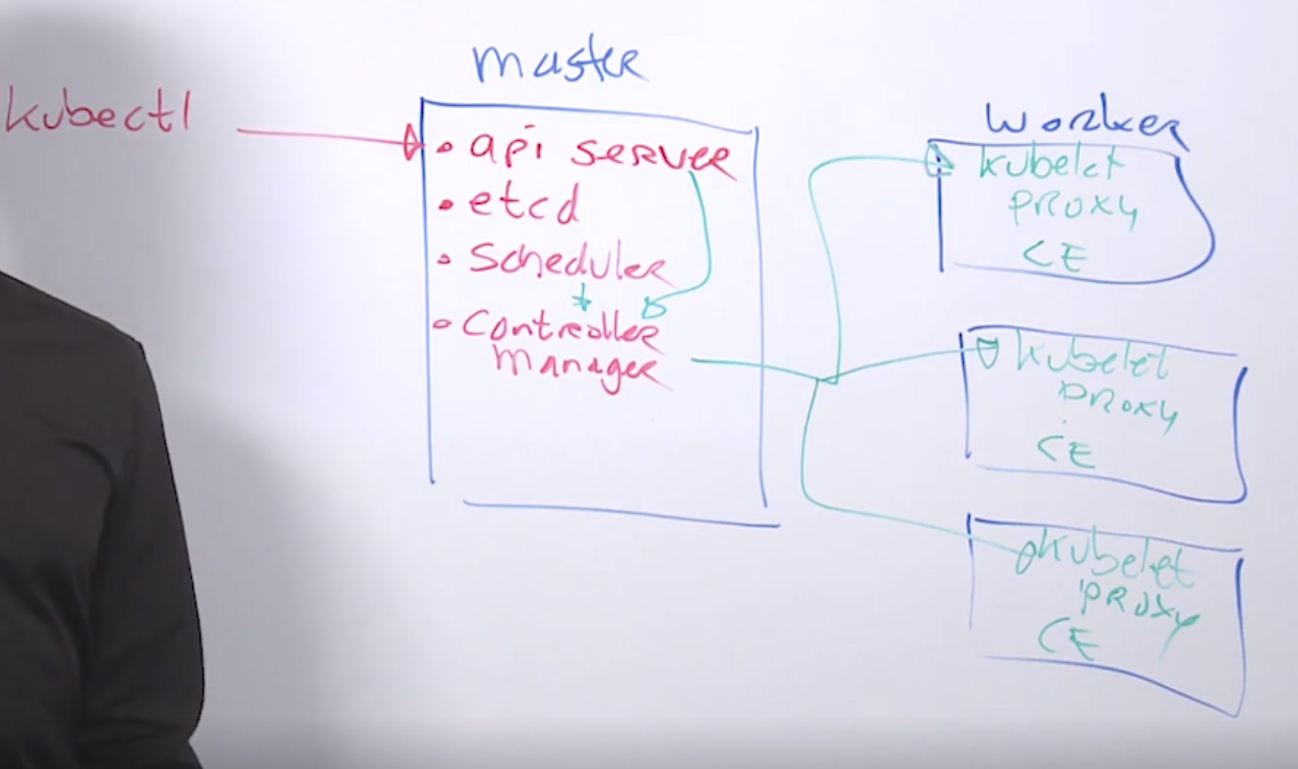 master
kubectl
• api server
• etcd
• Scheduler
• Controller
manager
Worker
kubelet
PROXY
CE
kubelet
PROXY
CE
kubelet
PROXY
CE